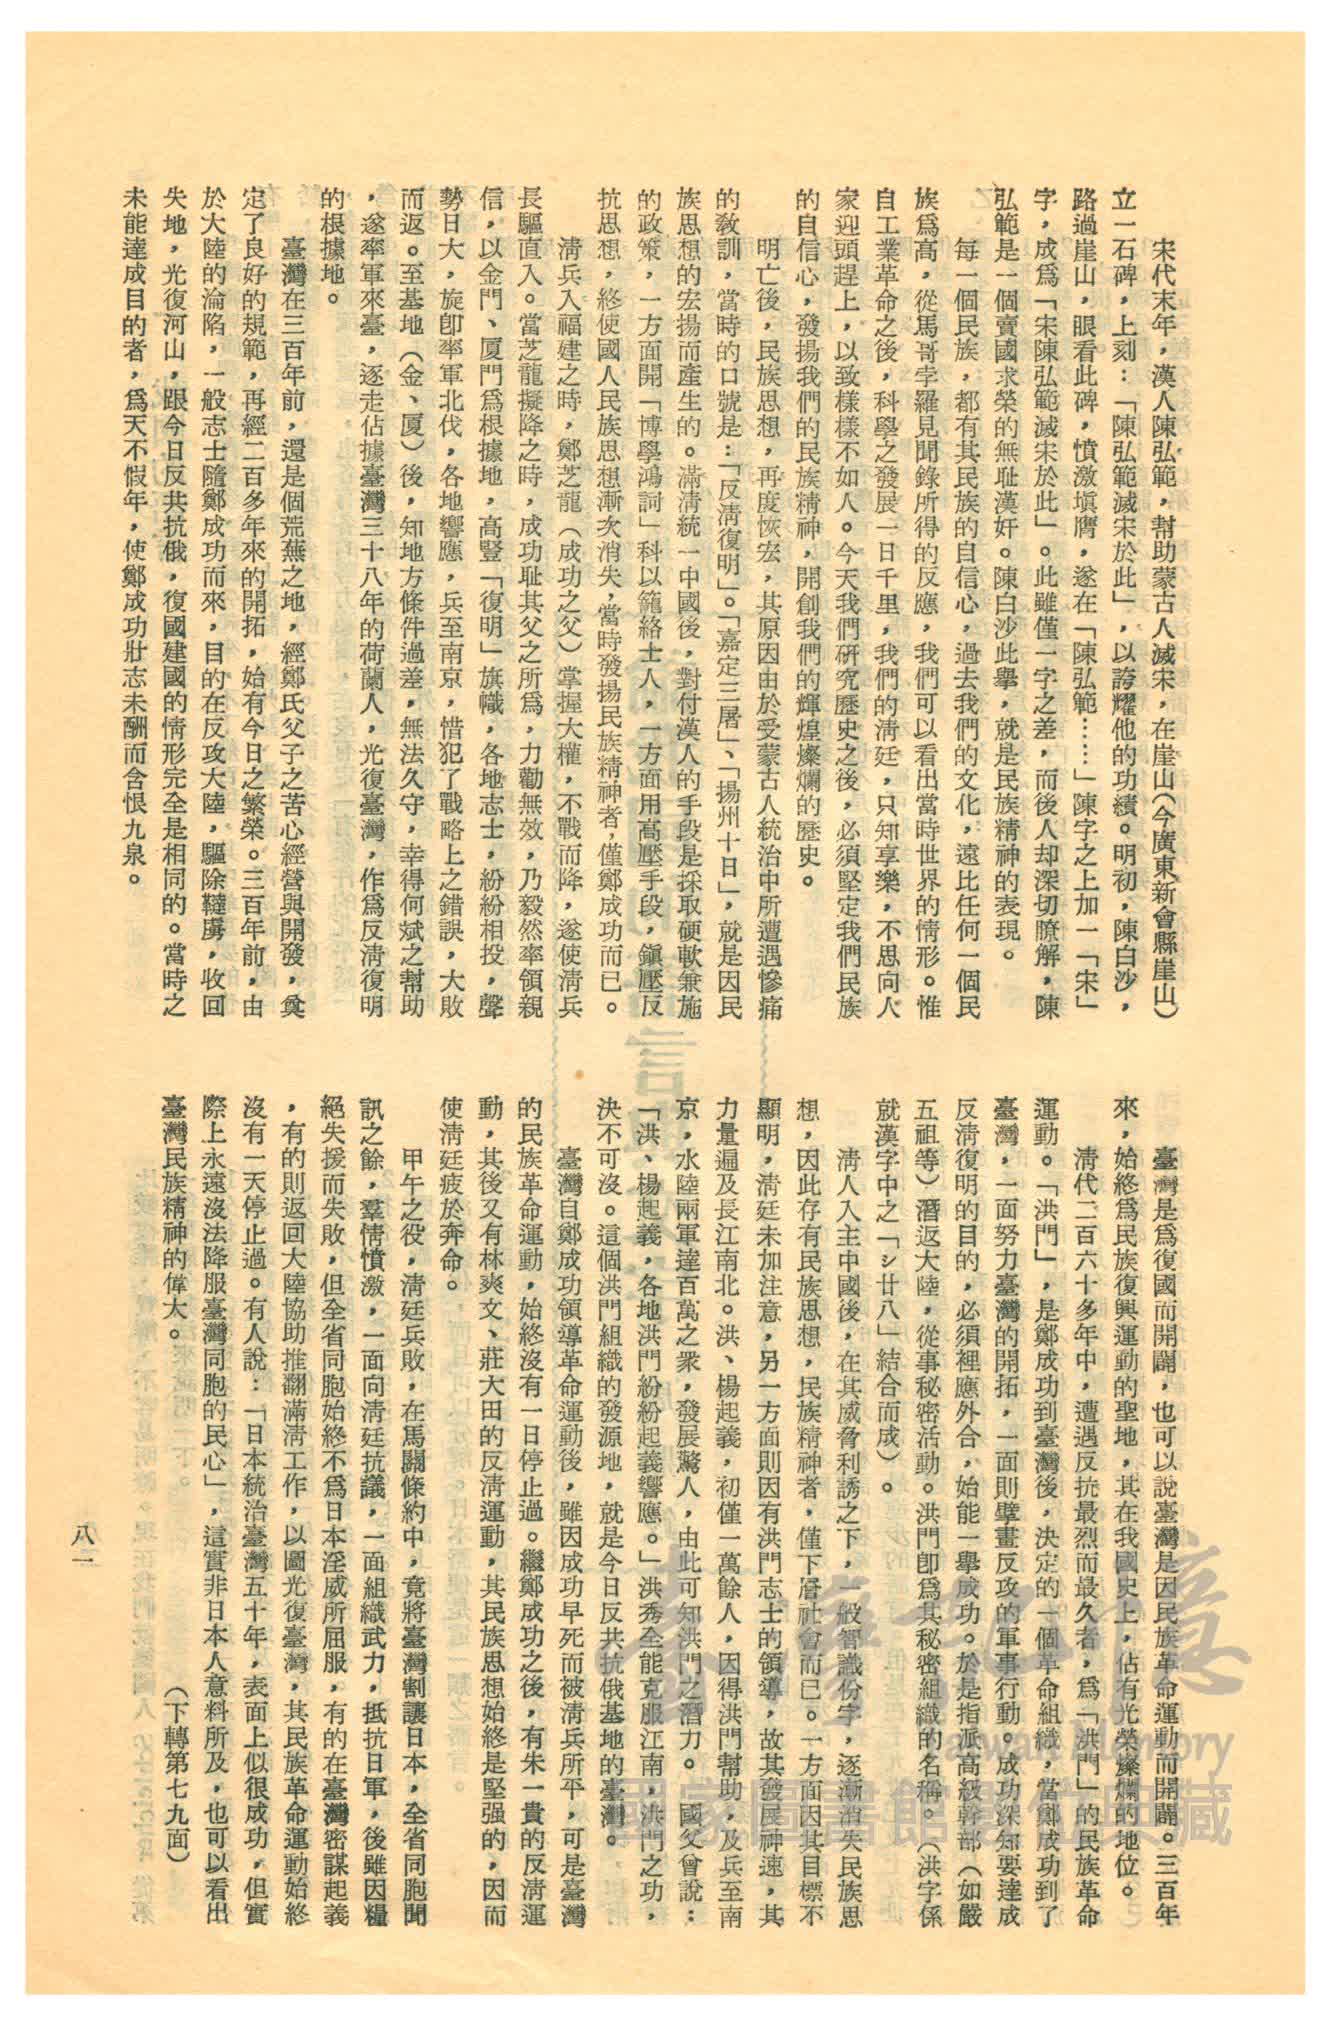 宋代末年，漢人陳弘範，幫助蒙古人滅宋，在崖山（今廣東新會縣崖山）
立一石碑，上刻：「陳弘範滅宋於此」，以誇耀他的功績。明初，陳白沙，
路過崖山，眼看此碑，憤激塡膺，遂在「陳弘範……」陳字之上加一「宋」
字，成爲「宋陳弘範滅宋於此」。此雖僅一字之差，而後人却深切瞭解，陳
弘範是一個賣國求榮的無耻漢奸。陳白沙此舉，就是民族精神的表現。
每一個民族，都有其民族的自信心，過去我們的文化，遠比任何一個民
族爲高，從馬哥孛羅見聞錄所得的反應，我們可以看出當時世界的情形。惟
自工業革命之後，科學之發展一日千里，我們的淸廷，只知享樂，不思向人
家迎頭趕上，以致樣樣不如人。今天我們硏究歷史之後，必須堅定我們民族
的自信心，發揚我們的民族精神，開創我們的輝煌燦爛的歷史。
明亡後，民族思想，再度恢宏，其原因由於受蒙古人統治中所遭遇慘痛
的敎訓，當時的口號是：「反淸復明」。「嘉定三屠」、「揚州十日」，就是因民
族思想的宏揚而產生的。滿淸統一中國後，對付漢人的手段是採取硬軟兼施
的政策，一方面開「博學鴻詞」科以籠絡士人，一方面用高壓手段，鎭壓反
抗思想，終使國人民族思想漸次消失，當時發揚民族精神者，僅鄭成功而已。
淸兵入福建之時，鄭芝龍（成功之父）掌握大權，不戰而降，遂使淸兵
長驅直入。當芝龍擬降之時，成功耻其父之所爲，力勸無效，乃毅然率領親
信，以金門、厦門爲根據地，高豎「復明」旗幟，各地志士，紛紛相投，聲
勢日大，旋卽率軍北伐，各地響應，兵至南京，惜犯了戰略上之錯誤，大敗
而返。至基地（金、厦）後，知地方條件過差，無法久守，幸得何斌之幫助
，遂率軍來臺，逐走佔據臺灣三十八年的荷蘭人，光復臺灣，作爲反淸復明
的根據地。
臺灣在三百年前，還是個荒蕪之地，經鄭氏父子之苦心經營與開發，奠
定了良好的規範，再經二百多年來的開拓，始有今日之繁榮。三百年前，由
於大陸的淪陷，一般志士隨鄭成功而來，目的在反攻大陸，驅除韃虜，收回
失地，光復河山，跟今日反共抗俄，復國建國的情形完全是相同的。當時之
未能達成目的者，爲天不假年，使鄭成功壯志未酬而含恨九泉。
臺灣是爲復國而開闢，也可以說臺灣是因民族革命運動而開闢。三百年
來，始終爲民族復興運動的聖地，其在我國史上，佔有光榮燦爛的地位。
淸代二百六十多年中，遭遇反抗最烈而最久者，爲「洪門」的民族革命
運動。「洪門」，是鄭成功到臺灣後，決定的一個革命組織，當鄭成功到了
臺灣，一面努力臺灣的開拓，一面則擘畫反攻的軍事行動。成功深知要達成
反淸復明的目的，必須裡應外合，始能一擧成功。於是指派高級幹部（如嚴
五祖等）潛返大陸，從事秘密活動。洪門卽爲其秘密組織的名稱。（洪字係
就漢字中之「シ廿八」結合而成）。
淸人入主中國後，在其威脅利誘之下，一般智識份字，逐漸消失民族思
想，因此存有民族思想，民族精神者，僅下層社會而已。一方面因其目標不
顯明，淸廷未加注意，另一方面則因有洪門志士的領導，故其發展神速，其
力量遍及長江南北。洪、楊起義，初僅一萬餘人，因得洪門幫助，及兵至南
京，水陸兩軍達百萬之衆，發展驚人，由此可知洪門之潛力。　國父曾說：
「洪、楊起義，各地洪門紛紛起義響應。」洪秀全能克服江南，洪門之功，
決不可沒。這個洪門組織的發源地，就是今日反共抗俄基地的臺灣。
臺灣自鄭成功領導革命運動後，雖因成功早死而被淸兵所平，可是臺灣
的民族革命運動，始終沒有一日停止過。繼鄭成功之後，有朱一貴的反淸運
動，其後又有林爽文、莊大田的反淸運動，其民族思想始終是堅强的，因而
使淸廷疲於奔命。
甲午之役，淸廷兵敗，在馬關條約中，竟將臺灣割讓日本，全省同胞聞
訊之餘，羣情憤激，一面向淸廷抗議，一面組織武力，抵抗日軍，後雖因糧
絕失援而失敗，但全省同胞始終不爲日本淫威所屈服，有的在臺灣密謀起義
，有的則返回大陸協助推翻滿淸工作，以圖光復臺灣，其民族革命運動始終
沒有一天停止過。有人說：「日本統治臺灣五十年，表面上似很成功，但實
際上永遠沒法降服臺灣同胞的民心」，這實非日本人意料所及，也可以看出
臺灣民族精神的偉大。
（下轉第七九面）
八一
臺灣記憶
Taiwan Memory
國家圖書館數位典藏